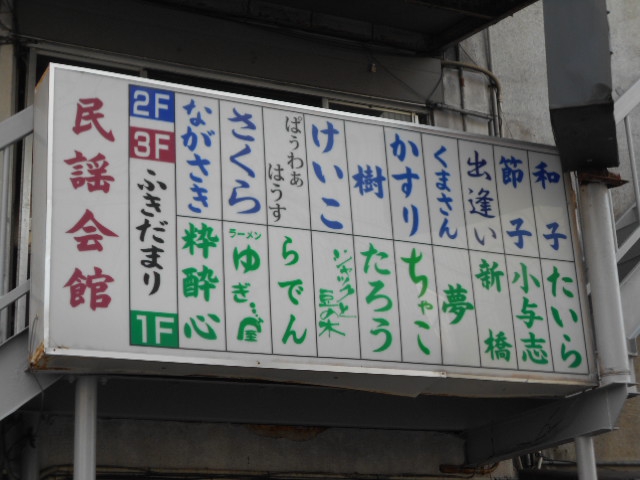 民謡会館
2F
3F
ふきだまり
1F
ながさき
さくら
ぱうわぁ
はうす
けいこ
樹
かすり
くまさん
出逢い
節子
和子
粋酔心
ラーメン
ゆぎ
屋
らでん
ジャックと
豆の木
たろう
ちゃこ
夢
新橋
小与志
たいら